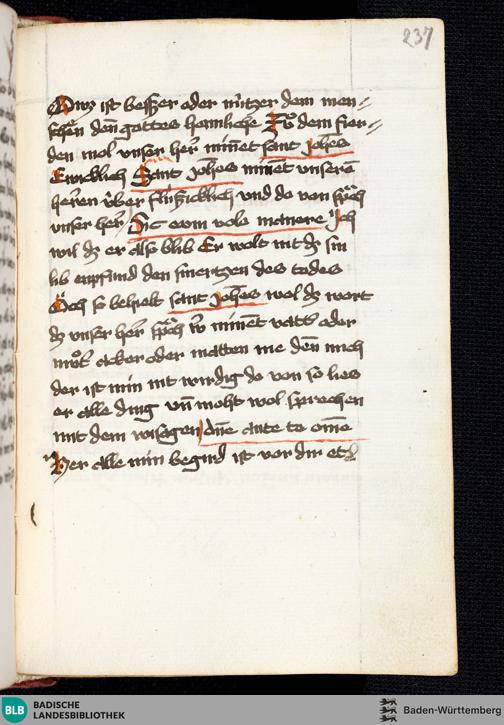 237
Was ist besser oder nützer dem men-
schen den gottes heimliche Zů dem fier-
den mol vnser her minnet sant johēs
Enneclich Sant johēs minnet vnserē
herren v́ber flússiclich vnd do von sprach
vnser her Sic eum volo manere Jch
wil dz er also blib Er wolt nit dz sin
lib enpfund den smertzen des todes
Och so behielt sant johēs wol dz wort
dz vnser her sprach wer minēt vatt oder
můt acker oder matten me den mich
der ist min nit wirdig do von so lies
er alle ding vn̄ moht wol sprechen
mit dem wissagen dn̄e ante te om̄e
Her alle min begird ist vor dir etc
BLB
BADISCHE
LANDESBIBLIOTHEK
Baden-Württemberg